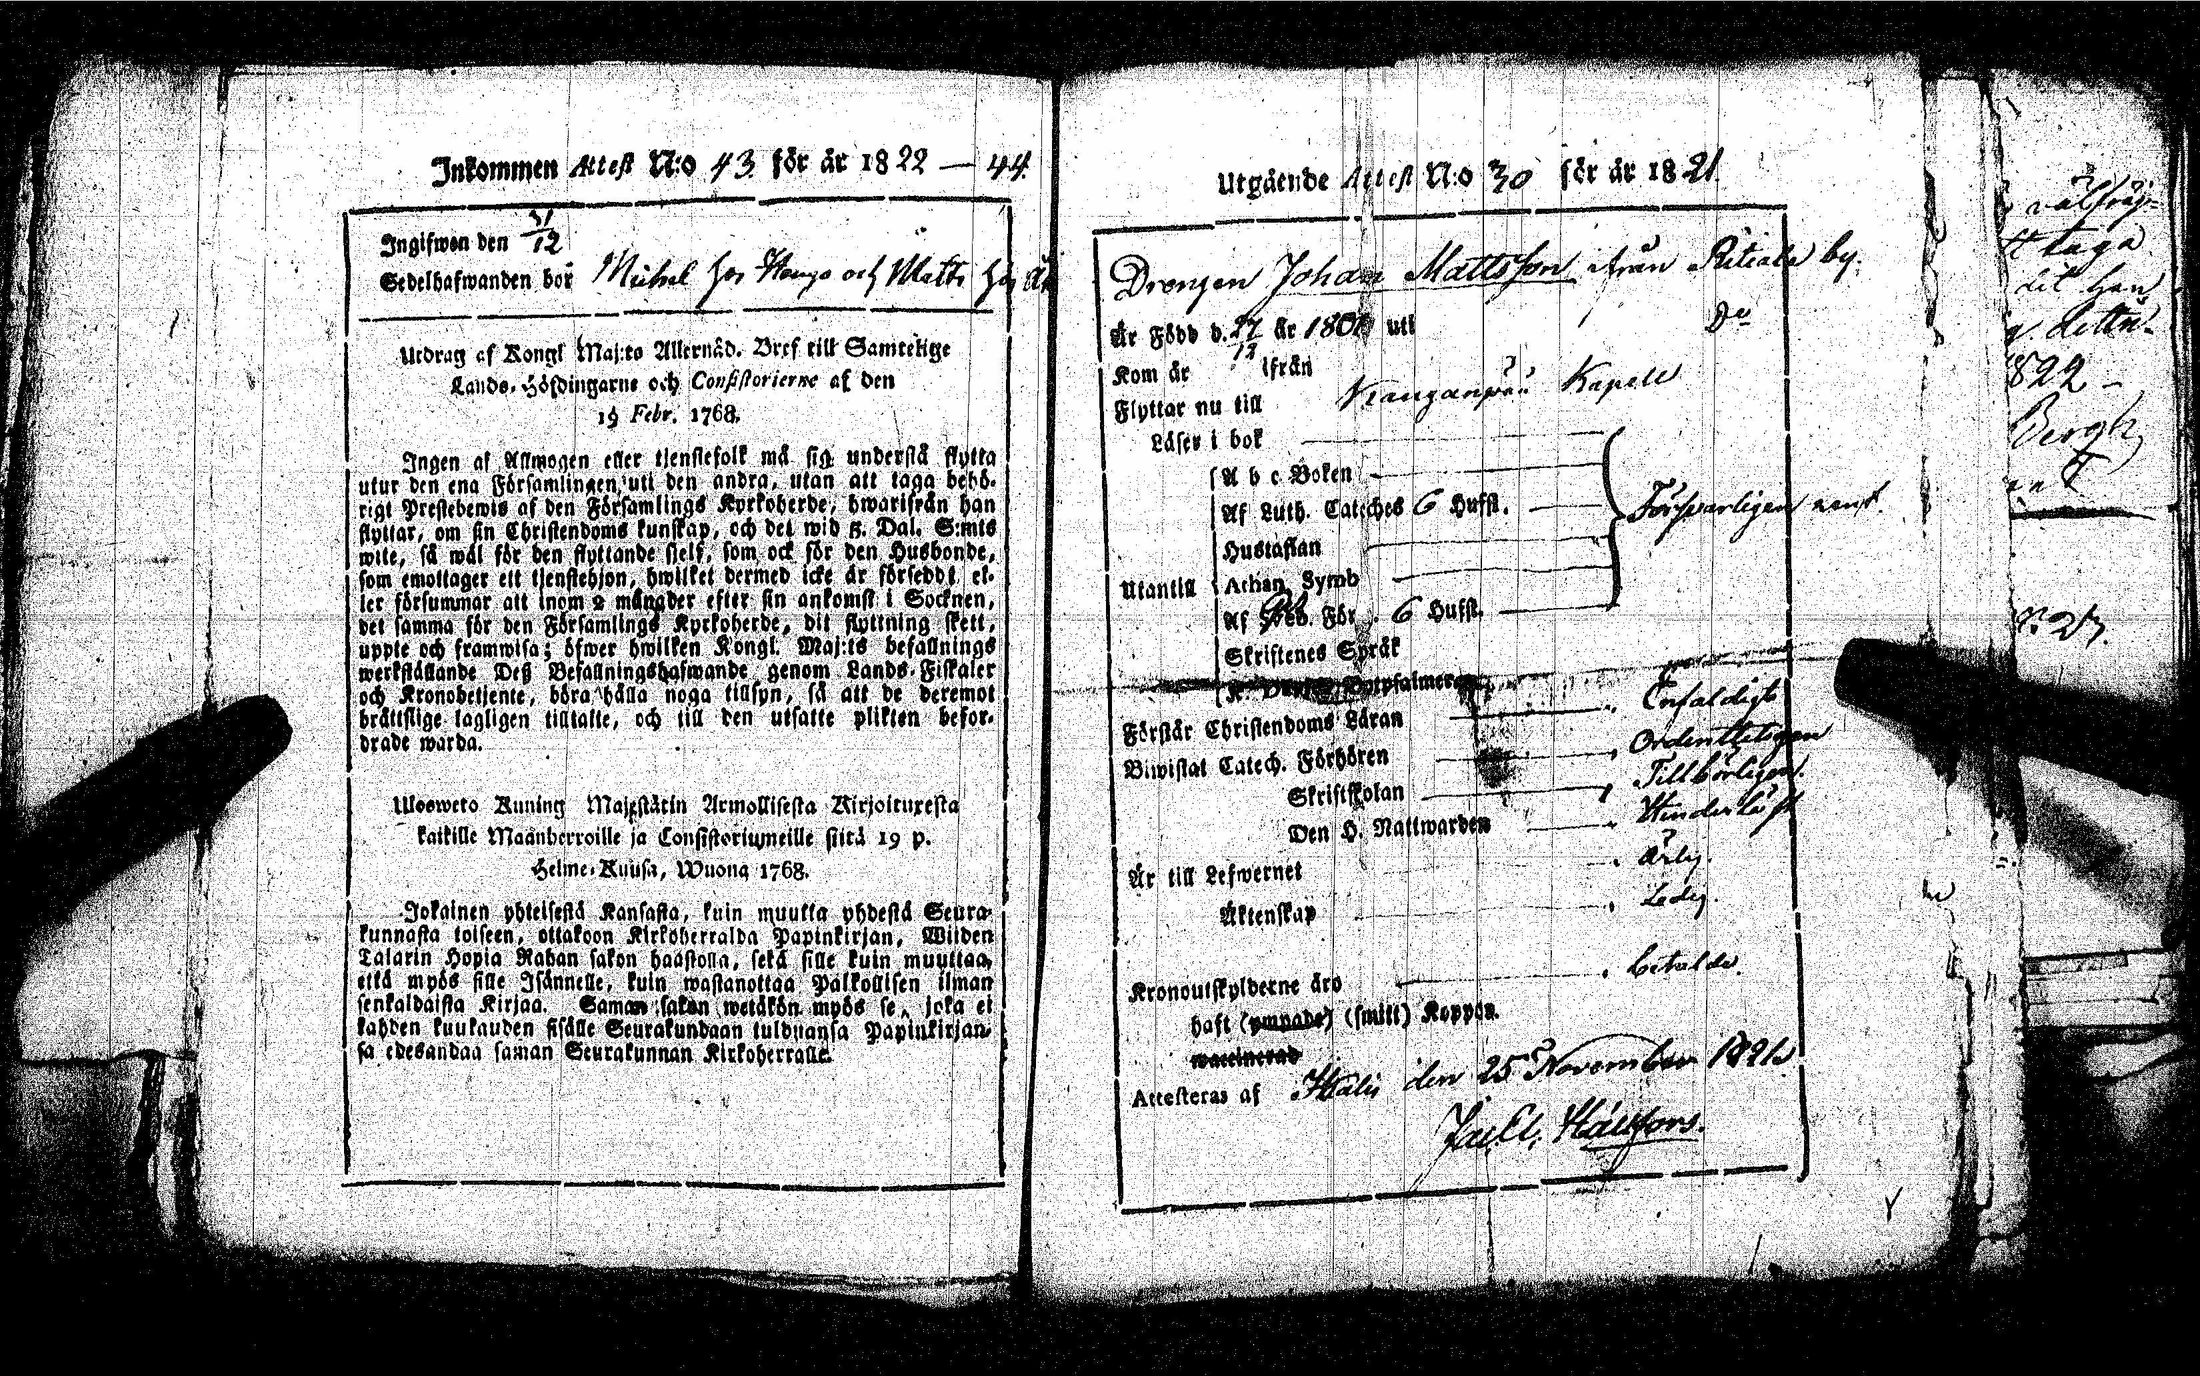 Inkommen Attest N:o 43 för år 1822 — 44.
Ingifwen den /12
Sedelhafwanden bor Michel hos och Matts hos
Utdrag af Kongl Maj:ts Allernåd. Bref till Samtelige
Lands-Höfdingarne och Consistorierne af den
19 Febr. 1768.
Ingen af Allmogen eller tjenstefolk må sig understå flytta
utur den ena Församlingen uti den andra, utan att taga behö-
rigt Prestebewis af den Församlings Kyrkoherde, hwarifrån han
flyttar, om sin Christendoms kunskap, och det wid 5. Dal. S:mts
wite, så wäl för den flyttande sjelf, som ock för den Husbonde,
som emottager ett tjenstehjon, hwilket dermed icke är försedt, el-
ler försummar att inom 2 månader efter sin ankomst i Socknen,
det samma för den Församlings Kyrkoherde, dit flyttning skett,
uppte och framwisa; öfwer hwilken Kongl. Maj:ts befallnings
werkställande Deß Befallningshafwande genom Lands-Fiskaler
och Kronobetjente, böra hålla noga tillsyn, så att de deremot
bråttslige lagligen tilltalte, och till den utsatte plikten befor-
drade warda.
Ulosweto Kuning Majestätin Armollisesta Kirjoituxesta
kaikille Maanherroille ja Consistoriumeille siitä 19 p.
Helme-Kuusa, Wuona 1768.
Jokainen yhteisestä Kansasta, kuin muutta yhdestä Seura-
kunnasta toiseen, ottakoon Kirkoherralda Papinkirjan, Wiiden
Talarin Hopia Rahan sakon haastolla, sekä sille kuin muuttaa,
että myös sille Isännelle, kuin wastanottaa Palkollisen ilman
senkaldaista Kirjaa. Saman sakon wetäkön myös se, joka ei
kahden kuukauden sisälle Seurakundaan tulduansa Papinkirjan-
sa edesandaa saman Seurakunnan Kirkoherralle.
Utgående Attest N:o 30 för år 1821.
Drengen Johan Mattsson ifrån by.
Är Född d. 27/12 år 180 uti Do
Kom år ifrån
Flyttar nu till Kanganpää Kapell
Läser i bok
A b c Boken
Af Luth. Cateches 6 Hufst.
Försvarligen rent.
Hustaflan
Utantill Athan. Symb
Af För . 6 Hufst.
Skriftenes Språk
Förstår Christendoms Läran Enfaldigt
Biwistat Catech. Förhören Ordentteligen
Skriftskolan Tillbörligen.
Den H. Nattwarden Hinderlöst
Är till Lefwernet Ärlig.
Äktenskap Ledig.
Kronoutskylderne äro betalde.
haft (ympade) (smitt) Koppor.
waccinerad
Attesteras af den 25 November 1821.
välfräj-
taga
dit han
822 —
Bergh